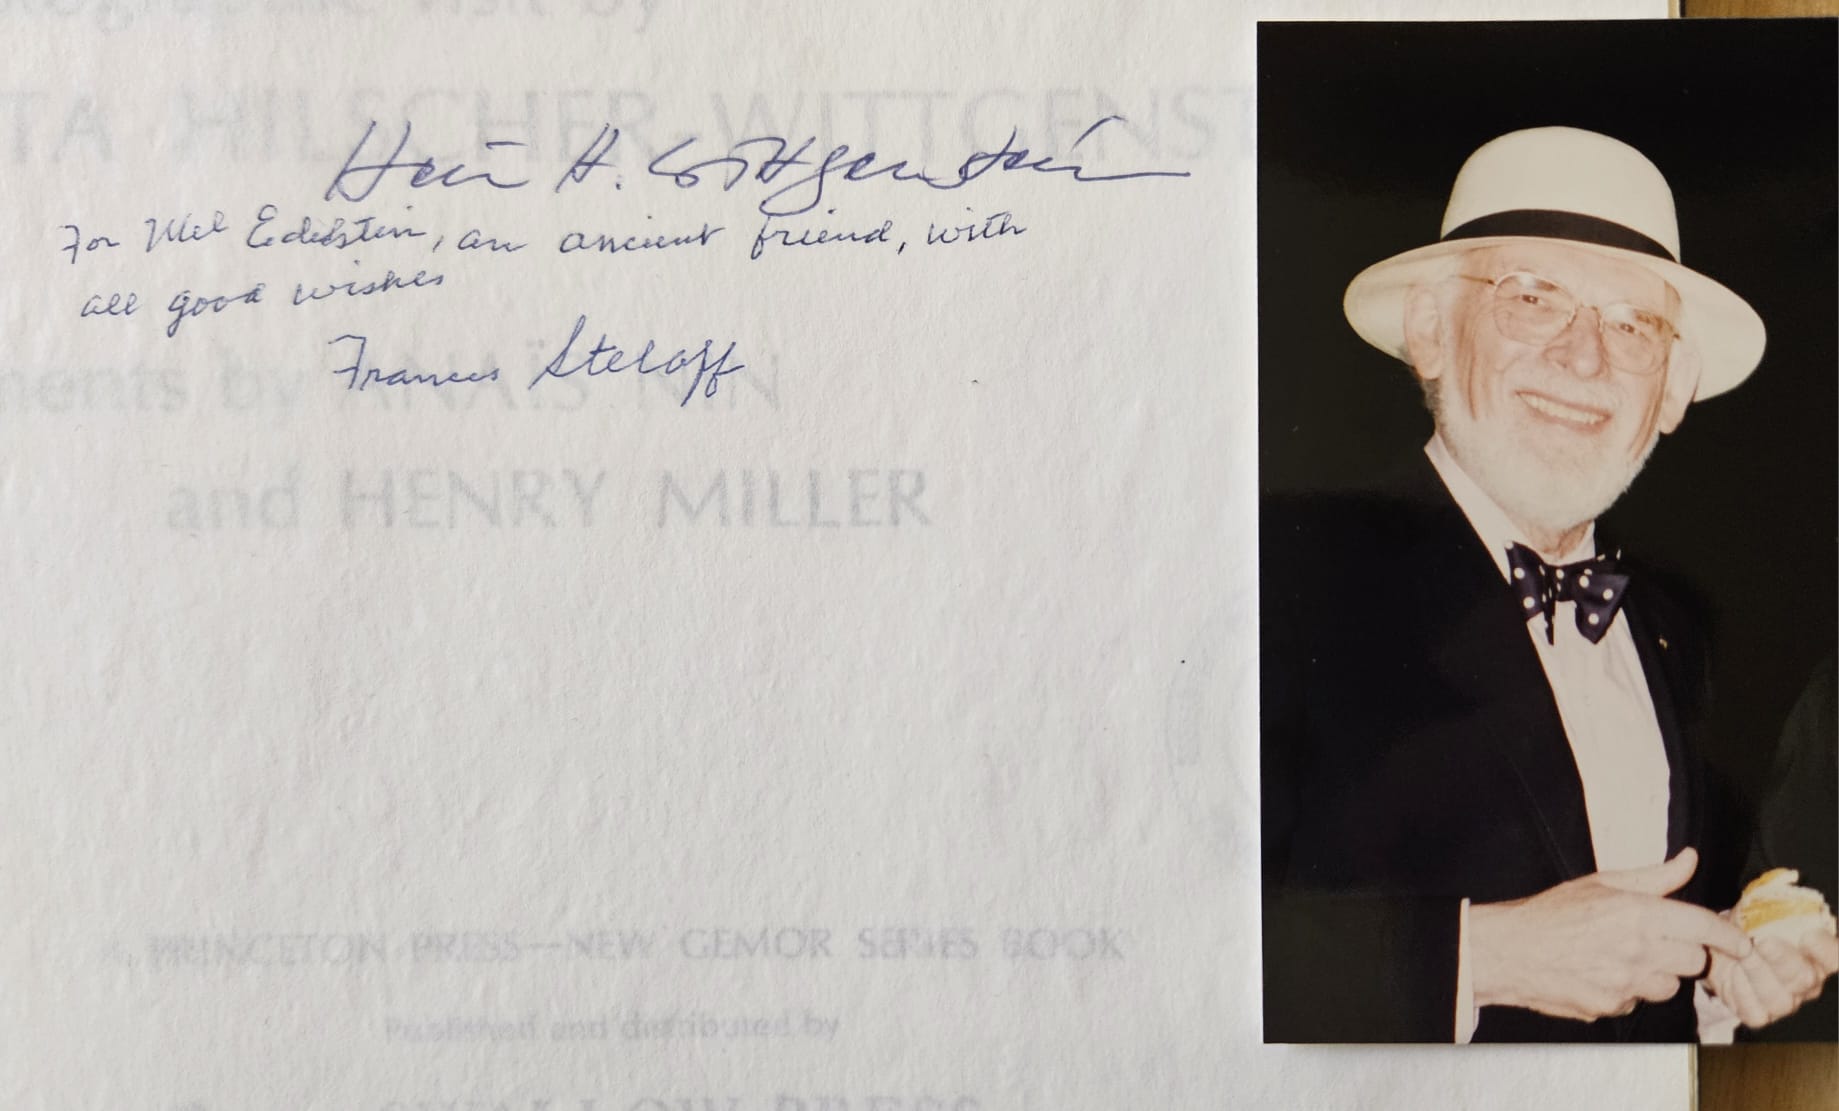 visit by
TA HILSCHER-WITTGENST
Hein H. Wittgenstein
For Mel Edelstein, an ancient friend, with
all good wishes
Frances Steloff
ments by ANAÏS NIN
and HENRY MILLER
A PRINCETON PRESS—NEW GEMOR SERIES BOOK
Published and distributed by
SWALLOW PRESS